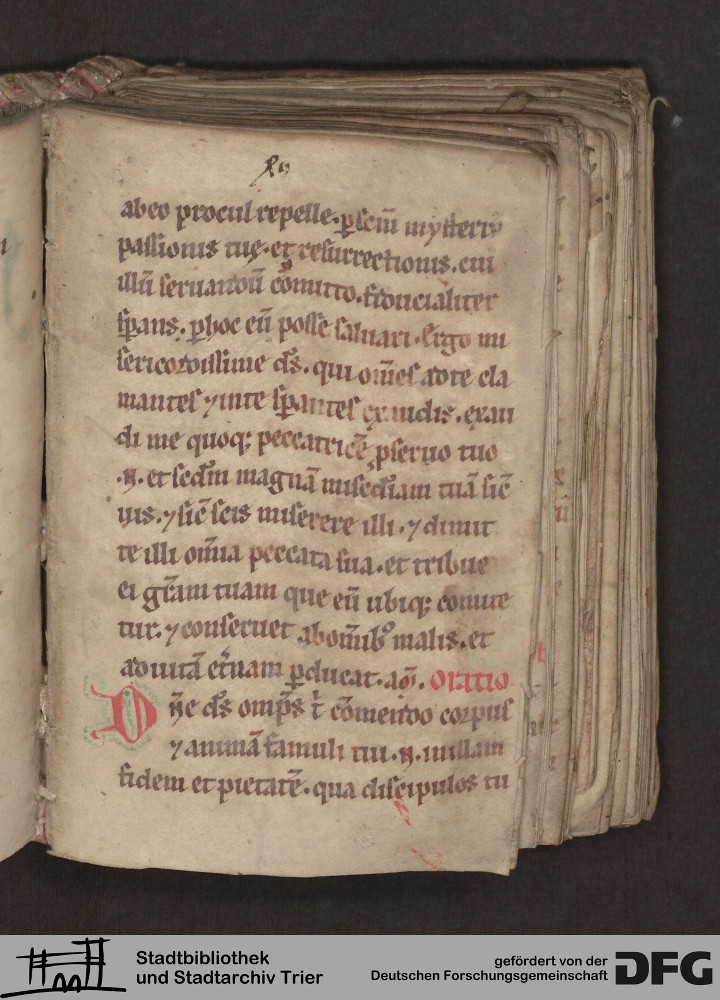 abeo procul repelle. ꝑ scm̄ mysteriū
passionis tuę. et resurrectionis. cui
illū seruandū cōmitto. fiduciáliter
sꝑans. ꝑ hoc eū posse saluari. Ergo mi
sericordissime ds̄. qui om̄es adte cla
mantes ⁊ inte sꝑantes exaudis. exau
di me quoq; peccatricē ꝓ seruo tuo
.N. et scd̄m magnā misc̄diam tuā sic̄
uis. ⁊ sic̄ scis miserere illi. ⁊ dimit
te illi om̄ia peccata sua. et tribue
ei gr̄am tuam que eū ubiq; comite
tur. ⁊ conseruet abom̄ibꝰ malis. et
aduitā et̄nam ꝑducat. Oratio
Dn̄e ds̄ omp̄s t̄ cōmendo corpus
⁊ animā famuli tui .N. in illam
fidem et pietatē. qua discipulos tu
Stadtbibliothek
und Stadtarchiv Trier
gefördert von der
Deutschen Forschungsgemeinschaft
DFG